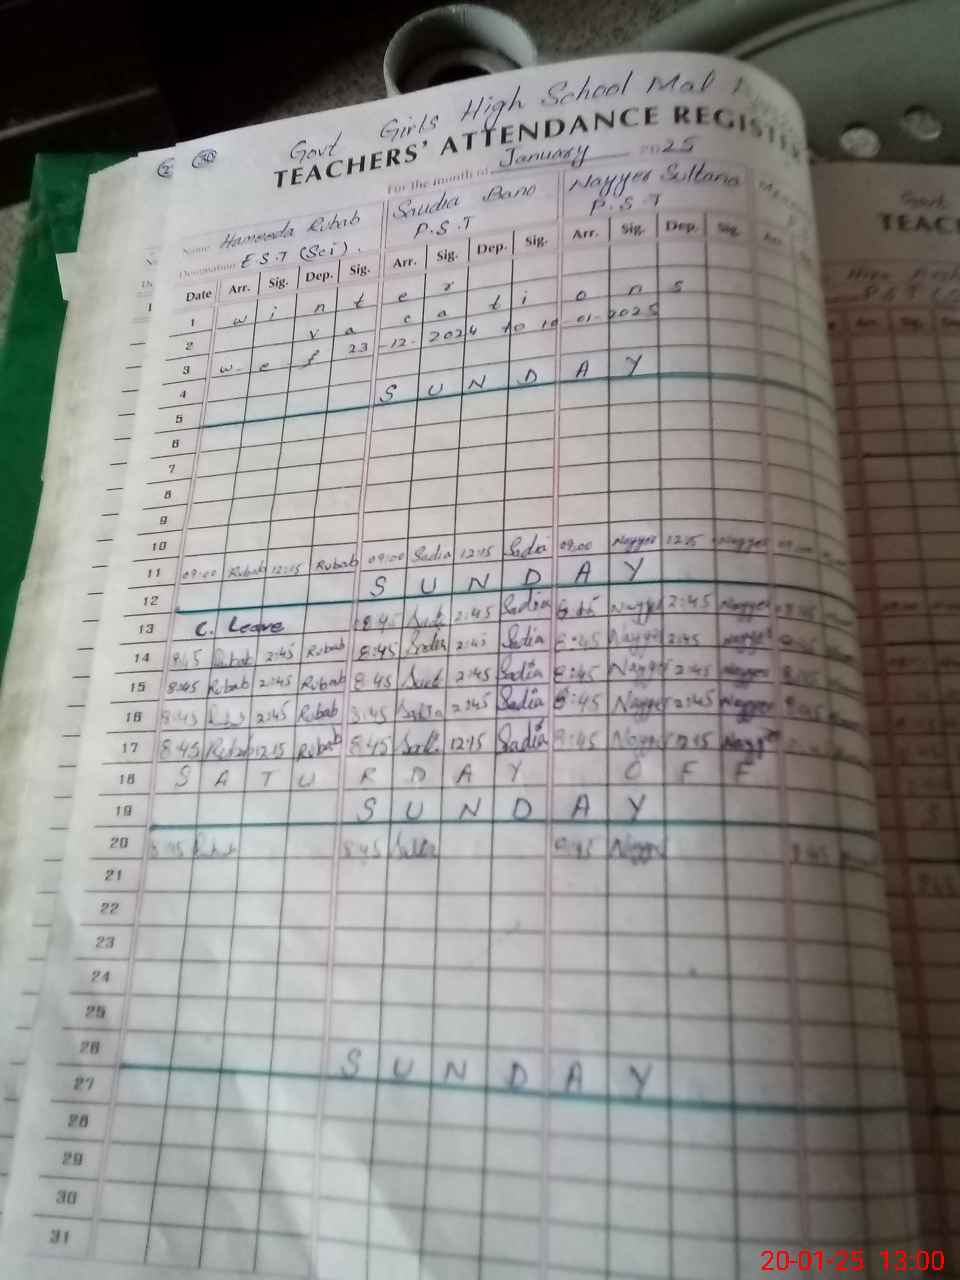 Govt Girls High School Mal
TEACHERS' ATTENDANCE REGISTER
For the month of January 2025
Name Hameeda Rubab Saudia Bano Nayyer Sultana
Designation E.S.T (Sci). P.S.T P.S.T
Date Arr. Sig. Dep. Sig. Arr. Sig. Dep. Sig. Arr. Sig. Dep. Sig. Arr.
1 w i n t e r
2 v a c a t i o n s
3 w. e f 23 -12- 2024 to 10 -01- 2025
4
5 S U N D A Y
6
7
8
9
10
11 09:00 Rubab 12:15 Rubab 09:00 Sadia 12:15 Sadia 09:00 Nayyer 12:15 Nayyer
12 S U N D A Y
13 C. Leave 8:45 2:45 Sadia Nayyer 2:45 Nayyer
14 Rubab 2:45 Rubab 8:45 Sadia 2:45 Sadia 8:45 Nayyer 2:45 Nayyer
15 8:45 Rubab 2:45 Rubab 8:45 2:45 Sadia 8:45 Nayyer 2:45 Nayyer
16 8:45 2:45 Rubab 8:45 Sadia 2:45 Sadia 8:45 Nayyer 2:45 Nayyer
17 8:45 Rubab 12:15 Rubab 8:45 12:15 Sadia 8:45 Nayyer 12:15 Nayyer
18 S A T U R D A Y O F F
19 S U N D A Y
20 8:45 8:45 8:45 Nayyer 8:45
21
22
23
24
25
26 S U N D A Y
27
28
29
30
31
TEAC
20-01-25 13:00